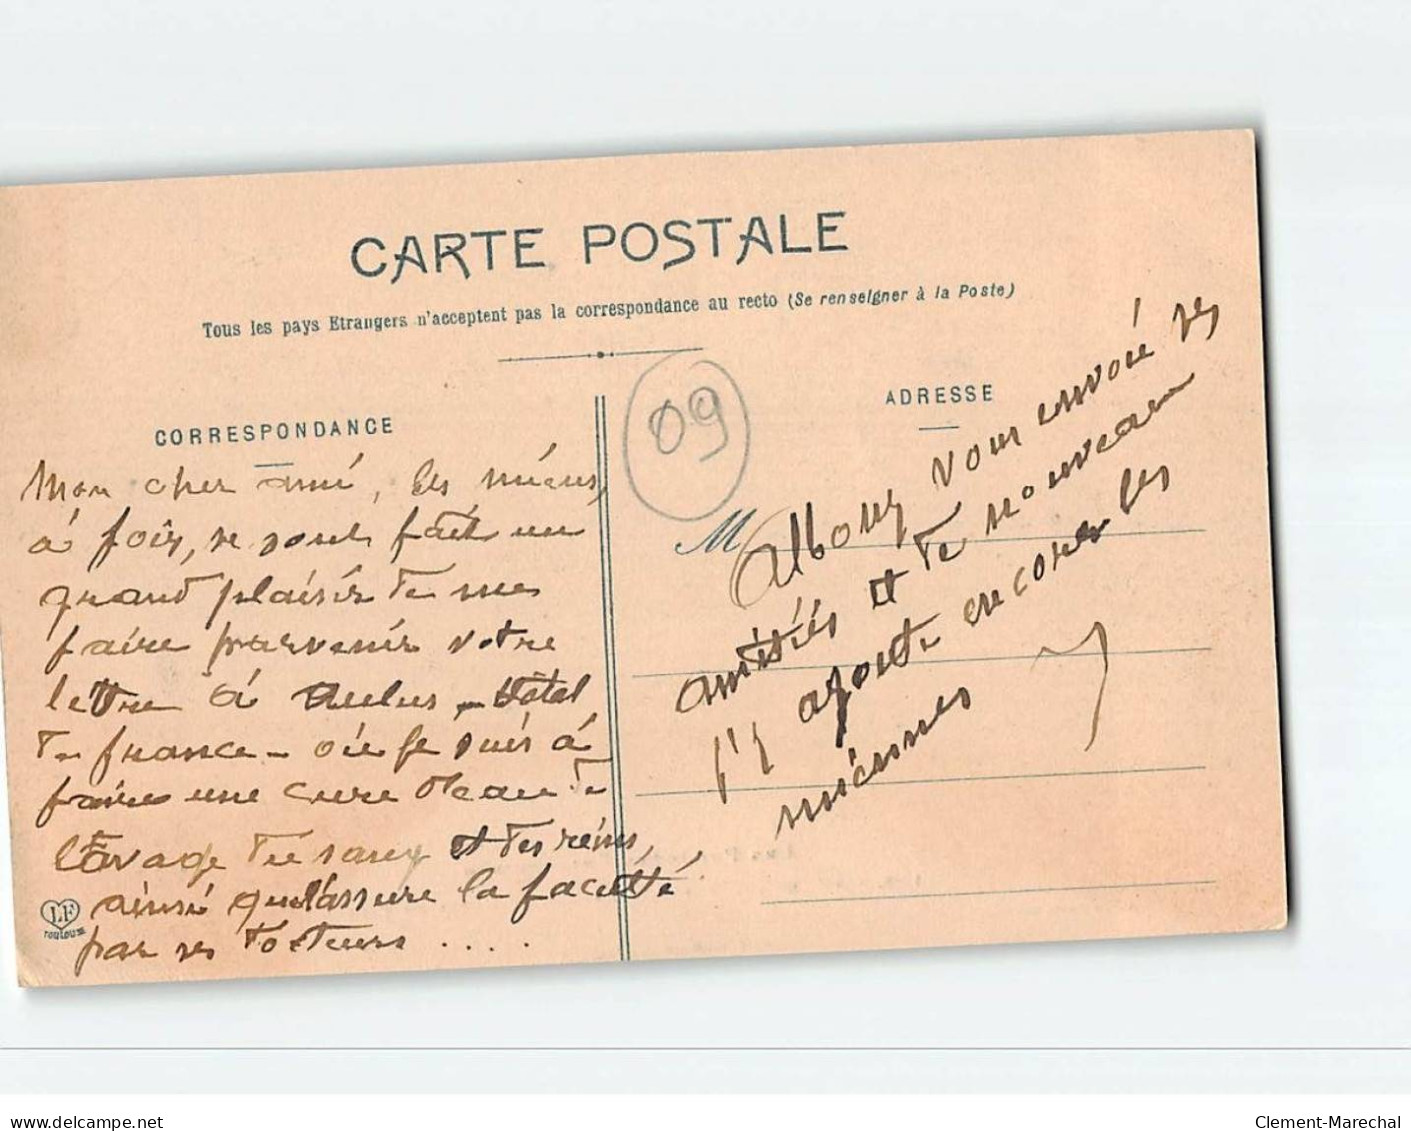 CARTE POSTALE
Tous les pays Etrangers n'acceptent pas la correspondance au recto (Se renseigner à la Poste)
CORRESPONDANCE
Mon cher ami, les miens,
à foix, se sont fait un
grand plaisir de me
faire parvenir votre
lettre à Aulus, Hôtel
de france - où je suis à
faire une cure d'eau de
lavage du sang et des reins,
ainsi que l'assure la faculté
par ses docteurs ....
LF
TOULOUSE
09
ADRESSE
M
vous envoie ses
amitiés et de nouveau
j'y ajoute encore les
miennes
delcampe.net
Clement-Marechal